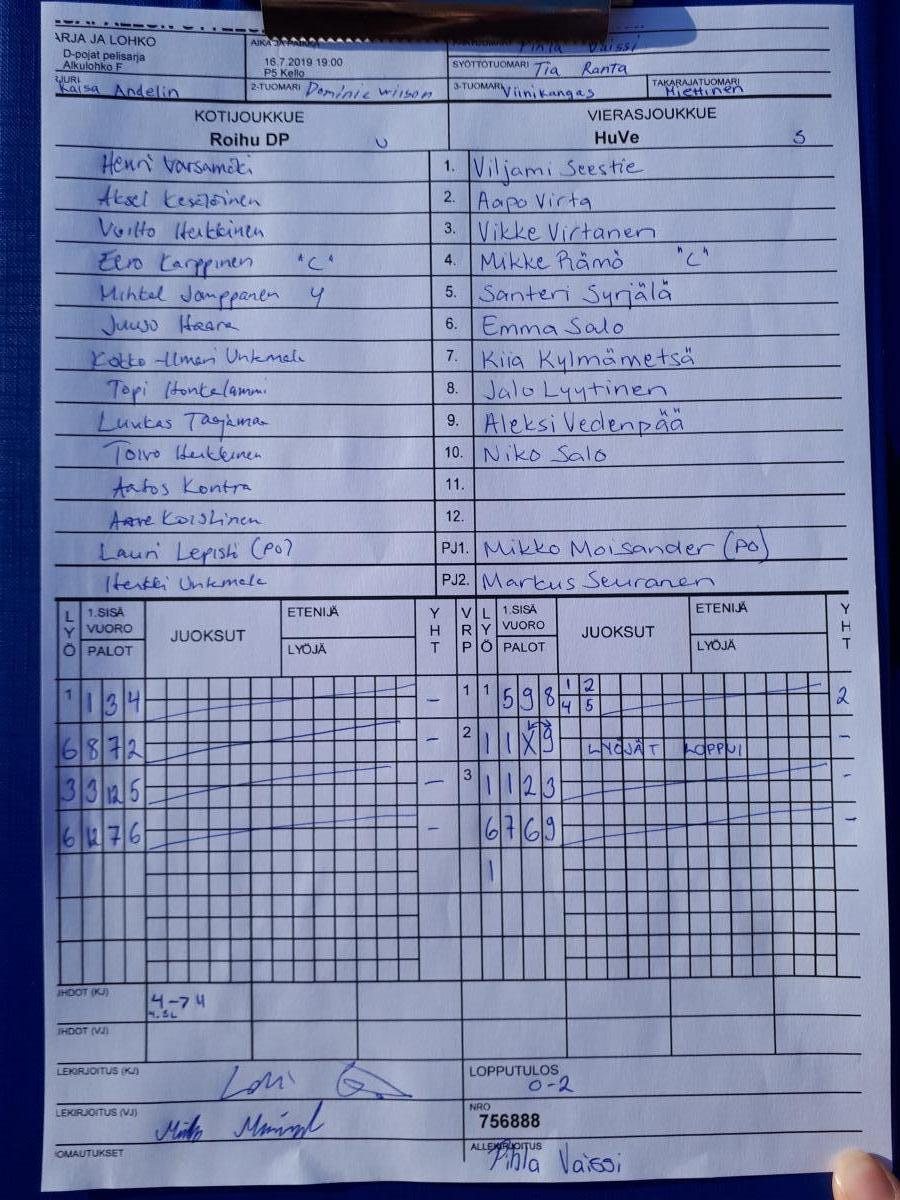 ARJA JA LOHKO
D-pojat pelisarja
Alkulohko F
AIKA JA PAIKKA
16.7.2019 19:00
P5 Kello
Pihla Vaissi
SYÖTTÖTUOMARI Tia Ranta
Kaisa Andelin
2-TUOMARI Dominic Wilson
3-TUOMARI Viinikangas
TAKARAJATUOMARI Miettinen
KOTIJOUKKUE
Roihu DP U
VIERASJOUKKUE
HuVe S
Henri Varsamäki 1. Viljami Seestie
Aksel 2. Aapo Virta
Voitto Heikkinen 3. Vikke Virtanen
Eero Karppinen "C" 4. Mikke Rämö "C"
Mihkel Jamppanen 4 5. Santeri Syrjälä
Juuso Haara 6. Emma Salo
7. Kiia Kylmämetsä
Topi Honkalammi 8. Jalo Lyytinen
Luukas 9. Aleksi Vedenpää
Toivo Heikkinen 10. Niko Salo
Aatos Kontra 11.
Aare 12.
Lauri Lepistö (PO) PJ1. Mikko Moisander (PO)
Heikki PJ2. Markus Seuranen
LYÖ 1.SISÄ VUORO PALOT JUOKSUT ETENIJÄ LYÖJÄ YHT VRP LYÖ 1.SISÄ VUORO PALOT JUOKSUT ETENIJÄ LYÖJÄ YHT
1 1 3 4 – 1 1 5 9 8 1 2 4 5 2
6 8 7 2 – 2 1 1 X 9 LYÖJÄT LOPPUI –
3 3 12 5 – 3 1 1 2 3 –
6 12 7 6 – 6 7 6 9 –
1
IHDOT (KJ) 4→4
IHDOT (VJ)
LEKIRJOITUS (KJ)
LOPPUTULOS
0-2
LEKIRJOITUS (VJ)
NRO
756888
OMAUTUKSET
ALLEKIRJOITUS
Pihla Vaissi